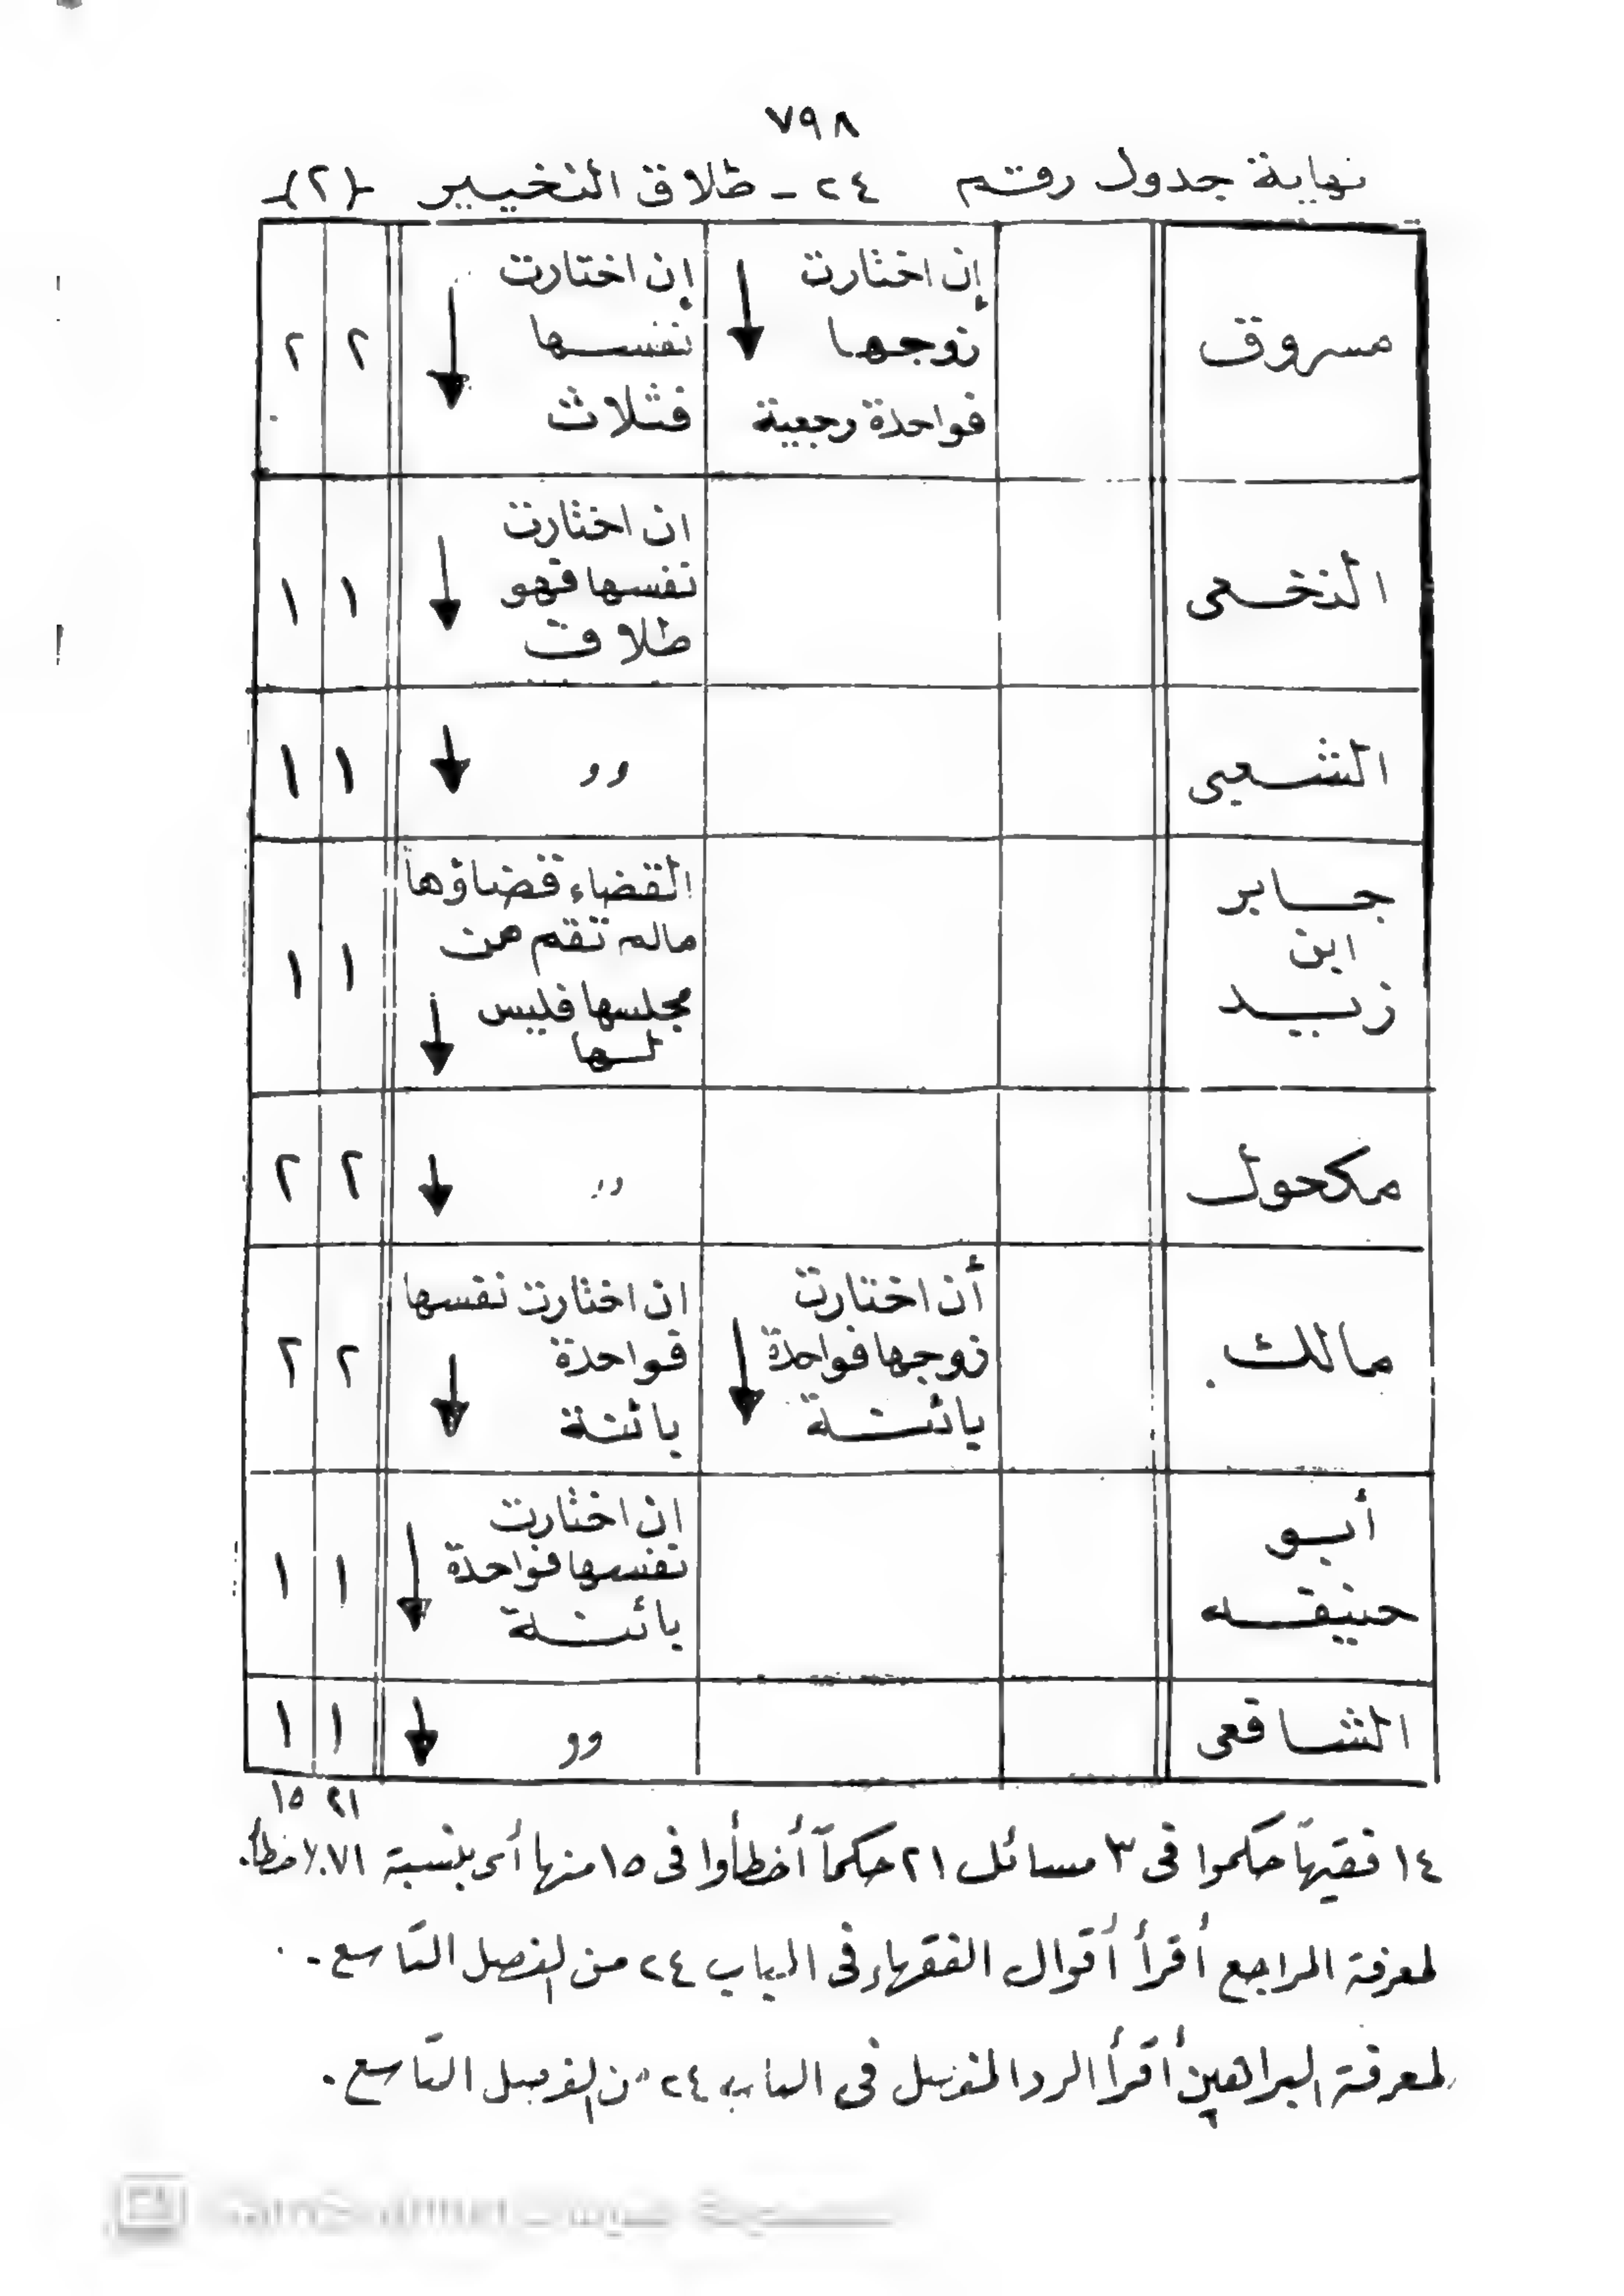 ٧٩٨
نهاية جدول رقم ٢٤ - طلاق التخيير -(٢)-
مسروق
إن اختارت
زوجها
فواحدة رجعية
إن اختارت
نفسها
فثلاث
٢ ٢
النخعى
ان اختارت
نفسها فهو
طلاق
١ ١
الشعبى
،،
١ ١
جابر
ابن
زيد
القضاء قضاؤها
مالم تقم من
مجلسها فليس
لها
١ ١
مكحول
،،
٢ ٢
مالك
أن اختارت
زوجها فواحدة
بائنة
ان اختارت نفسها
فواحدة
بائنة
٢ ٢
أبو
حنيفه
ان اختارت
نفسها فواحدة
بائنة
١ ١
الشافعى
،،
١ ١
٢١ ١٥
١٤ فقيهاً حكموا فى ٣ مسائل ٢١ حكماً أخطأوا فى ١٥ منها أى بنسبة ٧١٪ خطأ.
لمعرفة المراجع أقرأ أقوال الفقهاء فى الباب ٢٤ من الفصل التاسع .
لمعرفة البراهين أقرأ الرد المفصل فى الباب ٢٤ من الفصل التاسع .